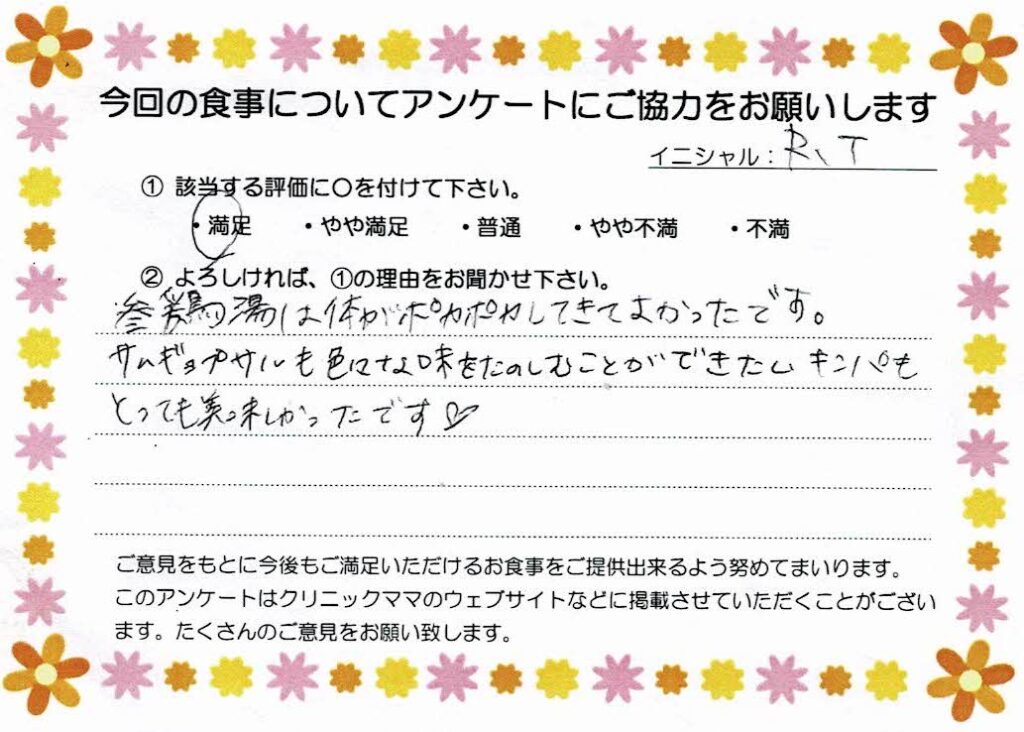 今回の食事についてアンケートにご協力をお願いします
イニシャル：R、T
① 該当する評価に〇を付けて下さい。
・満足 ・やや満足 ・普通 ・やや不満 ・不満
② よろしければ、①の理由をお聞かせ下さい。
参鶏湯は体がポカポカしてきてよかったです。
サムギョプサルも色々な味をたのしむことができたしキンパも
とっても美味しかったです♡
ご意見をもとに今後もご満足いただけるお食事をご提供出来るよう努めてまいります。
このアンケートはクリニックママのウェブサイトなどに掲載させていただくことがござい
ます。たくさんのご意見をお願い致します。